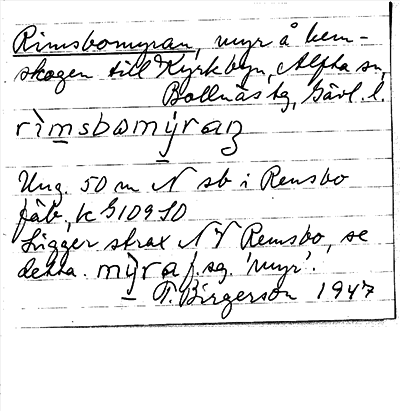 Rimsbomyran, myr å hem-
skogen till Kyrkbyn, Alfta sn,
Bollnäs tg, Gävl. l.
rimsbomýraꞃ
Ung. 50 m N sb i Remsbo
fäb, k G109 SO
Ligger strax NV Remsbo, se
detta. mỳra f. sg. 'myr'.
T. Birgerson 1947